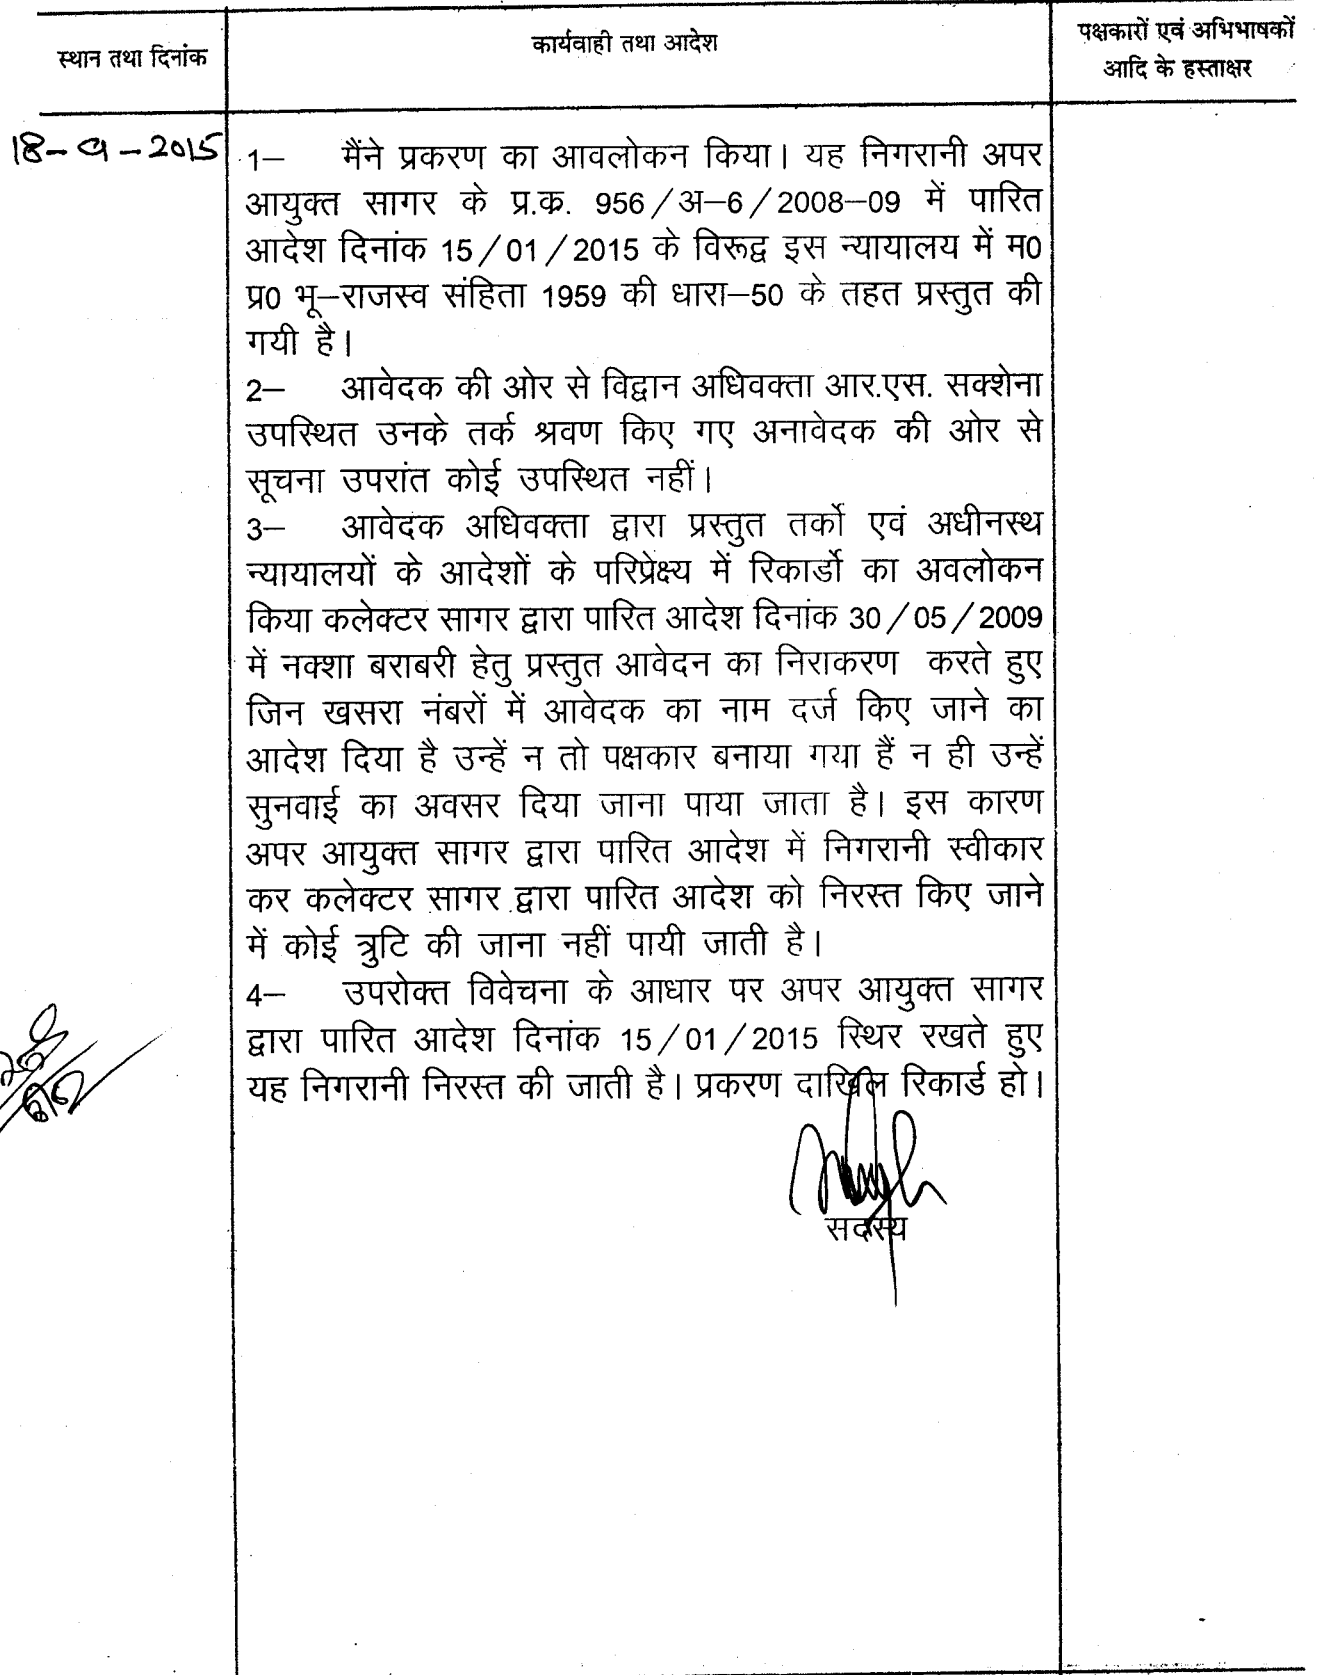 स्थान तथा दिनांक
कार्यवाही तथा आदेश
पक्षकारों एवं अभिभाषकों
आदि के हस्ताक्षर
18-9-2015
1– मैंने प्रकरण का आवलोकन किया। यह निगरानी अपर
आयुक्त सागर के प्र.क्र. 956/अ–6/2008–09 में पारित
आदेश दिनांक 15/01/2015 के विरूद्व इस न्यायालय में म0
प्र0 भू–राजस्व संहिता 1959 की धारा–50 के तहत प्रस्तुत की
गयी है।
2– आवेदक की ओर से विद्वान अधिवक्ता आर.एस. सक्शेना
उपस्थित उनके तर्क श्रवण किए गए अनावेदक की ओर से
सूचना उपरांत कोई उपस्थित नहीं।
3– आवेदक अधिवक्ता द्वारा प्रस्तुत तर्को एवं अधीनस्थ
न्यायालयों के आदेशों के परिप्रेक्ष्य में रिकार्डो का अवलोकन
किया कलेक्टर सागर द्वारा पारित आदेश दिनांक 30/05/2009
में नक्शा बराबरी हेतु प्रस्तुत आवेदन का निराकरण करते हुए
जिन खसरा नंबरों में आवेदक का नाम दर्ज किए जाने का
आदेश दिया है उन्हें न तो पक्षकार बनाया गया हैं न ही उन्हें
सुनवाई का अवसर दिया जाना पाया जाता है। इस कारण
अपर आयुक्त सागर द्वारा पारित आदेश में निगरानी स्वीकार
कर कलेक्टर सागर द्वारा पारित आदेश को निरस्त किए जाने
में कोई त्रुटि की जाना नहीं पायी जाती है।
4– उपरोक्त विवेचना के आधार पर अपर आयुक्त सागर
द्वारा पारित आदेश दिनांक 15/01/2015 स्थिर रखते हुए
यह निगरानी निरस्त की जाती है। प्रकरण दाखिल रिकार्ड हो।
सदस्य